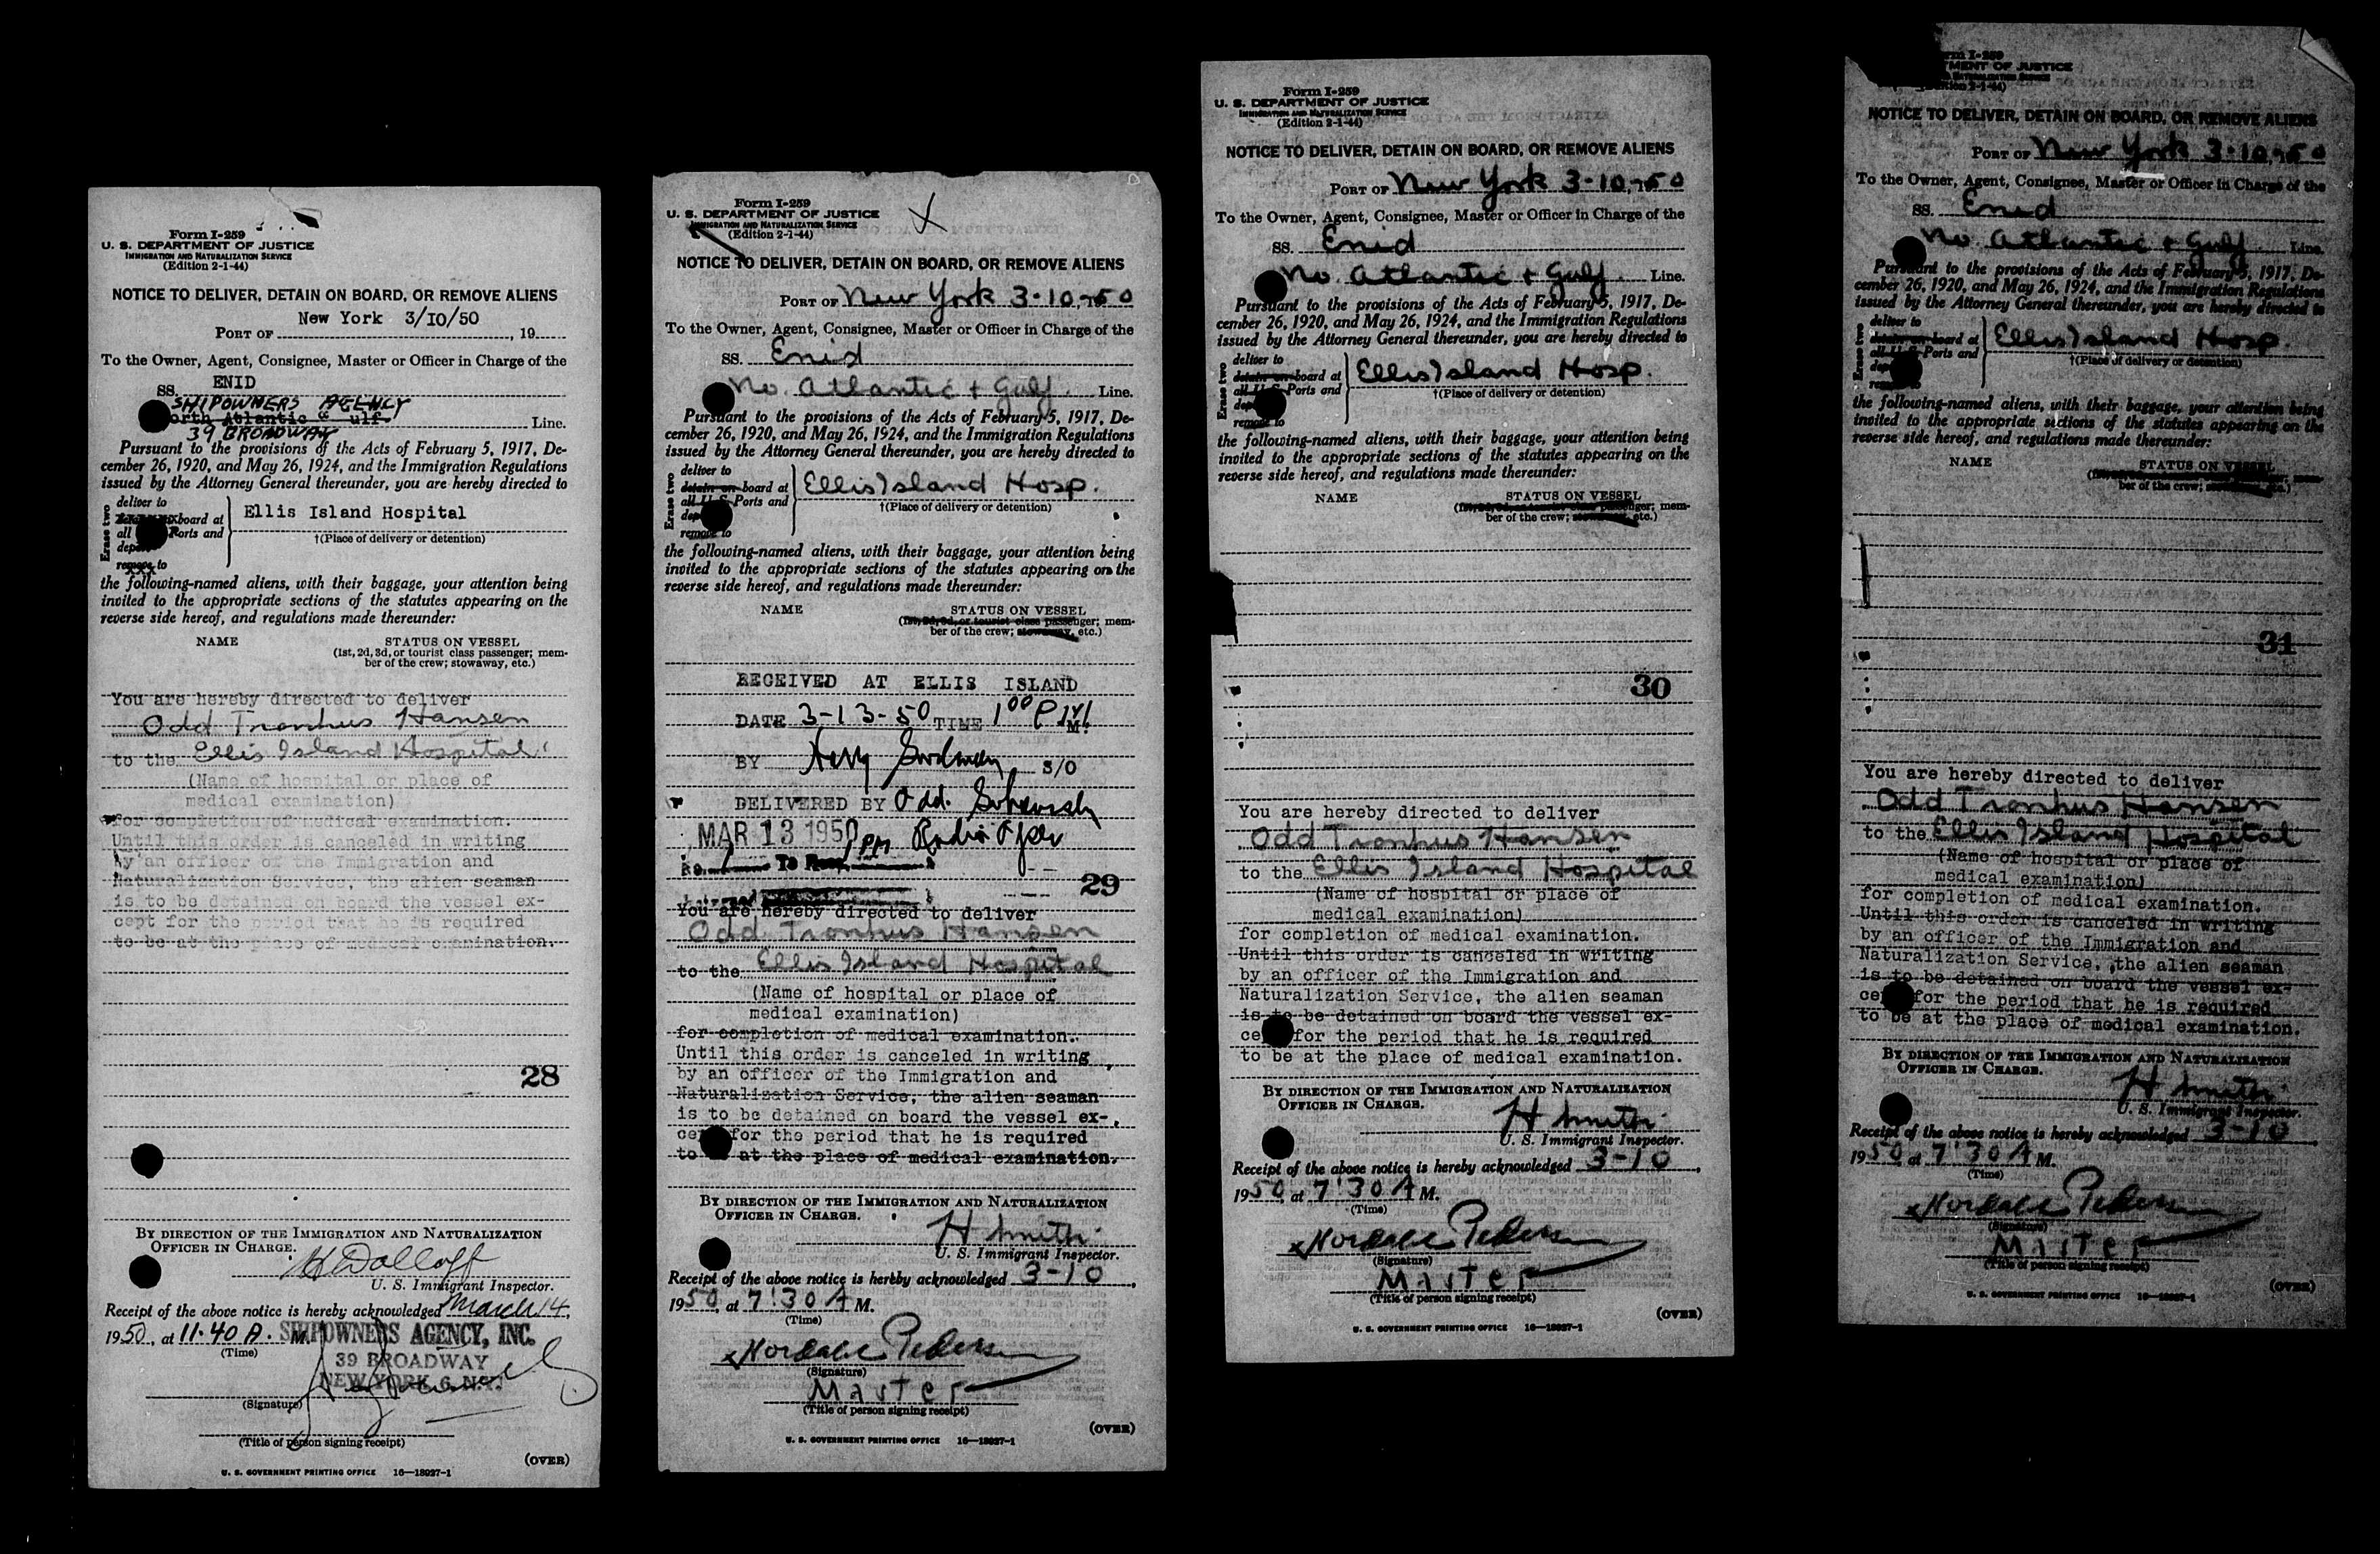 Form I-259
U. S. DEPARTMENT OF JUSTICE
IMMIGRATION AND NATURALIZATION SERVICE
(Edition 2-1-44)
NOTICE TO DELIVER, DETAIN ON BOARD, OR REMOVE ALIENS
New York 3/10/50
PORT OF , 19
To the Owner, Agent, Consignee, Master or Officer in Charge of the
SS. ENID
SHIPOWNERS AGENCY
orth Atlantic & ulf Line.
39 BROADWAY
Pursuant to the provisions of the Acts of February 5, 1917, De-
cember 26, 1920, and May 26, 1924, and the Immigration Regulations
issued by the Attorney General thereunder, you are hereby directed to
Erase two
deliver to
board at
all Ports and
remove to
Ellis Island Hospital
†(Place of delivery or detention)
the following-named aliens, with their baggage, your attention being
invited to the appropriate sections of the statutes appearing on the
reverse side hereof, and regulations made thereunder:
NAME STATUS ON VESSEL
(1st, 2d, 3d, or tourist class passenger; mem-
ber of the crew; stowaway, etc.)
You are hereby directed to deliver
Odd Tronhus Hansen
to the Ellis Island Hospital
(Name of hospital or place of
medical examination)
for completion of medical examination.
Until this order is canceled in writing
by an officer of the Immigration and
Naturalization Service, the alien seaman
is to be detained on board the vessel ex-
cept for the period that he is required
to be at the place of medical examination.
28
BY DIRECTION OF THE IMMIGRATION AND NATURALIZATION
OFFICER IN CHARGE.
U. S. Immigrant Inspector.
Receipt of the above notice is hereby acknowledged March 14,
1950, at 11.40 A. M.
(Time)
SHIPOWNERS AGENCY, INC.
39 BROADWAY
NEW YORK 6, N.Y.
(Signature)
(Title of person signing receipt)
(OVER)
U. S. GOVERNMENT PRINTING OFFICE 16—18927-1
Form I-259
U. S. DEPARTMENT OF JUSTICE
IMMIGRATION AND NATURALIZATION SERVICE
(Edition 2-1-44)
X
NOTICE TO DELIVER, DETAIN ON BOARD, OR REMOVE ALIENS
PORT OF New York 3-10, 1950
To the Owner, Agent, Consignee, Master or Officer in Charge of the
SS. Enid
No. Atlantic + Gulf. Line.
Pursuant to the provisions of the Acts of February 5, 1917, De-
cember 26, 1920, and May 26, 1924, and the Immigration Regulations
issued by the Attorney General thereunder, you are hereby directed to
Erase two
deliver to
detain on board at
all U S Ports and
remove to
Ellis Island Hosp.
†(Place of delivery or detention)
the following-named aliens, with their baggage, your attention being
invited to the appropriate sections of the statutes appearing on the
reverse side hereof, and regulations made thereunder:
NAME STATUS ON VESSEL
(1st, 2d, 3d, or tourist class passenger; mem-
ber of the crew; stowaway, etc.)
RECEIVED AT ELLIS ISLAND
DATE 3-13-50 TIME 1 00 P M.
BY S/O
DELIVERED BY Odd.
MAR 13 1950 PM Radio
29
You are hereby directed to deliver
Odd Tronhus Hansen
to the Ellis Island Hospital
(Name of hospital or place of
medical examination)
for completion of medical examination.
Until this order is canceled in writing
by an officer of the Immigration and
Naturalization Service, the alien seaman
is to be detained on board the vessel ex-
ce for the period that he is required
to at the place of medical examination.
BY DIRECTION OF THE IMMIGRATION AND NATURALIZATION
OFFICER IN CHARGE.
H Smith
U. S. Immigrant Inspector.
Receipt of the above notice is hereby acknowledged 3-10,
1950, at 7:30 A M.
(Time)
x Pedersen
(Signature)
Master
(Title of person signing receipt)
(OVER)
U. S. GOVERNMENT PRINTING OFFICE 16—18927-1
Form I-259
U. S. DEPARTMENT OF JUSTICE
IMMIGRATION AND NATURALIZATION SERVICE
(Edition 2-1-44)
NOTICE TO DELIVER, DETAIN ON BOARD, OR REMOVE ALIENS
PORT OF New York 3-10, 1950
To the Owner, Agent, Consignee, Master or Officer in Charge of the
SS. Enid
No. Atlantic + Gulf. Line.
Pursuant to the provisions of the Acts of February 5, 1917, De-
cember 26, 1920, and May 26, 1924, and the Immigration Regulations
issued by the Attorney General thereunder, you are hereby directed to
Erase two
deliver to
detain on board at
all U S Ports and
remove to
Ellis Island Hosp.
†(Place of delivery or detention)
the following-named aliens, with their baggage, your attention being
invited to the appropriate sections of the statutes appearing on the
reverse side hereof, and regulations made thereunder:
NAME STATUS ON VESSEL
(1st, 2d, 3d, or tourist class passenger; mem-
ber of the crew; stowaway, etc.)
30
You are hereby directed to deliver
Odd Tronhus Hansen
to the Ellis Island Hospital
(Name of hospital or place of
medical examination)
for completion of medical examination.
Until this order is canceled in writing
by an officer of the Immigration and
Naturalization Service, the alien seaman
is to be detained on board the vessel ex-
ce for the period that he is required
to be at the place of medical examination.
BY DIRECTION OF THE IMMIGRATION AND NATURALIZATION
OFFICER IN CHARGE.
H Smith
U. S. Immigrant Inspector.
Receipt of the above notice is hereby acknowledged 3-10,
1950, at 7:30 A M.
(Time)
x Pedersen
(Signature)
Master
(Title of person signing receipt)
(OVER)
U. S. GOVERNMENT PRINTING OFFICE 16—18927-1
rm I-259
TMENT OF JUSTICE
NATURALIZATION SERVICE
(Edition 2-1-44)
NOTICE TO DELIVER, DETAIN ON BOARD, OR REMOVE ALIENS
PORT OF New York 3-10, 1950
To the Owner, Agent, Consignee, Master or Officer in Charge of the
SS. Enid
No. Atlantic + Gulf. Line.
Pursuant to the provisions of the Acts of February 5, 1917, De-
cember 26, 1920, and May 26, 1924, and the Immigration Regulations
issued by the Attorney General thereunder, you are hereby directed to
Erase two
deliver to
detain on board at
all U S Ports and
Ellis Island Hosp.
†(Place of delivery or detention)
the following-named aliens, with their baggage, your attention being
invited to the appropriate sections of the statutes appearing on the
reverse side hereof, and regulations made thereunder:
NAME STATUS ON VESSEL
mem-
ber of the crew; stowaway, etc.)
31
You are hereby directed to deliver
Odd Tronhus Hansen
to the Ellis Island Hospital
(Name of hospital or place of
medical examination)
for completion of medical examination.
Until this order is canceled in writing
by an officer of the Immigration and
Naturalization Service, the alien seaman
is to be detained on board the vessel ex-
ce for the period that he is required
to be at the place of medical examination.
BY DIRECTION OF THE IMMIGRATION AND NATURALIZATION
OFFICER IN CHARGE.
H Smith
U. S. Immigrant Inspector.
Receipt of the above notice is hereby acknowledged 3-10,
1950, at 7:30 A M.
(Time)
x Pedersen
(Signature)
Master
(Title of person signing receipt)
(OVER)
U. S. GOVERNMENT PRINTING OFFICE 16—18927-1